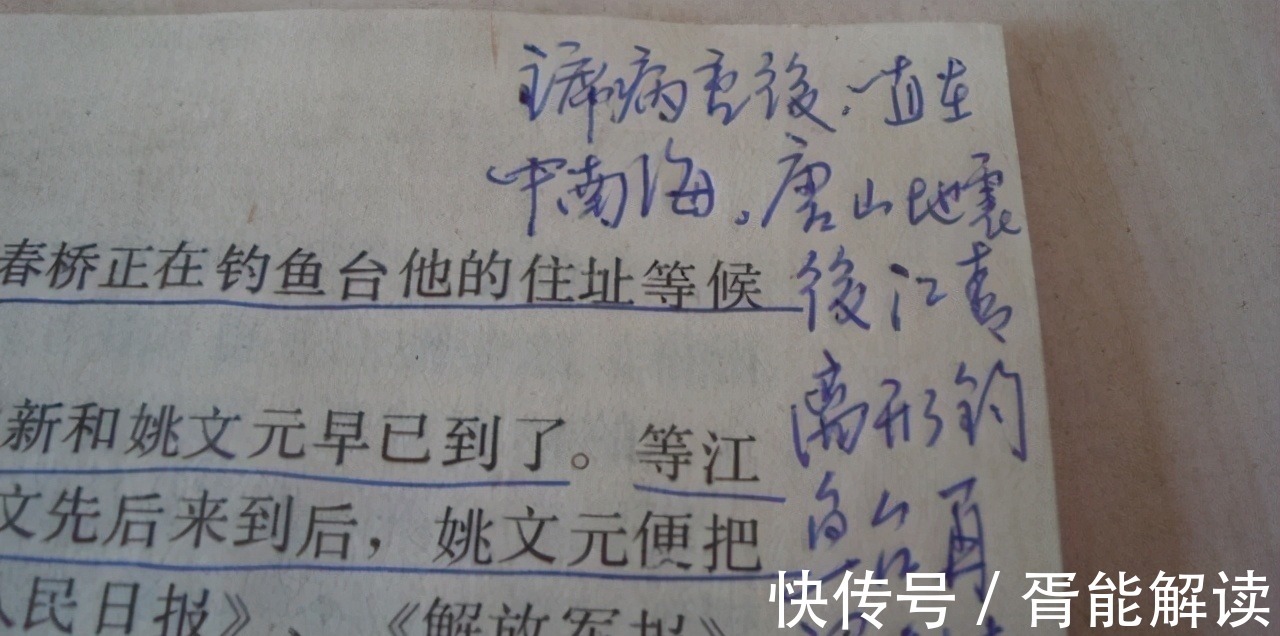 主席病重後，一直在
中南海。唐山地震
春桥正在钓鱼台他的住址等候
後江青
离开钓
新和姚文元早已到了。等江
鱼台再
文先后来到后，姚文元便把
人民日报》、《解放军报》
快传号 / 胥能解读